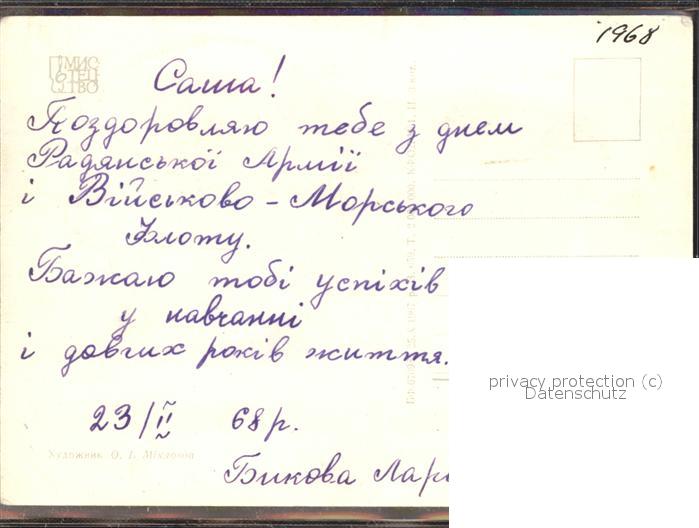 1968
МИС
ТЕЦ
ТВО
Саша!
Поздоровляю тебе з днем
Радянської Армії
і Військово-Морського
Флоту.
Бажаю тобі успіхів
у навчанні
і довгих років життя.
23/II 68 р.
Художник О. І.
Бикова
privacy protection (c)
Datenschutz